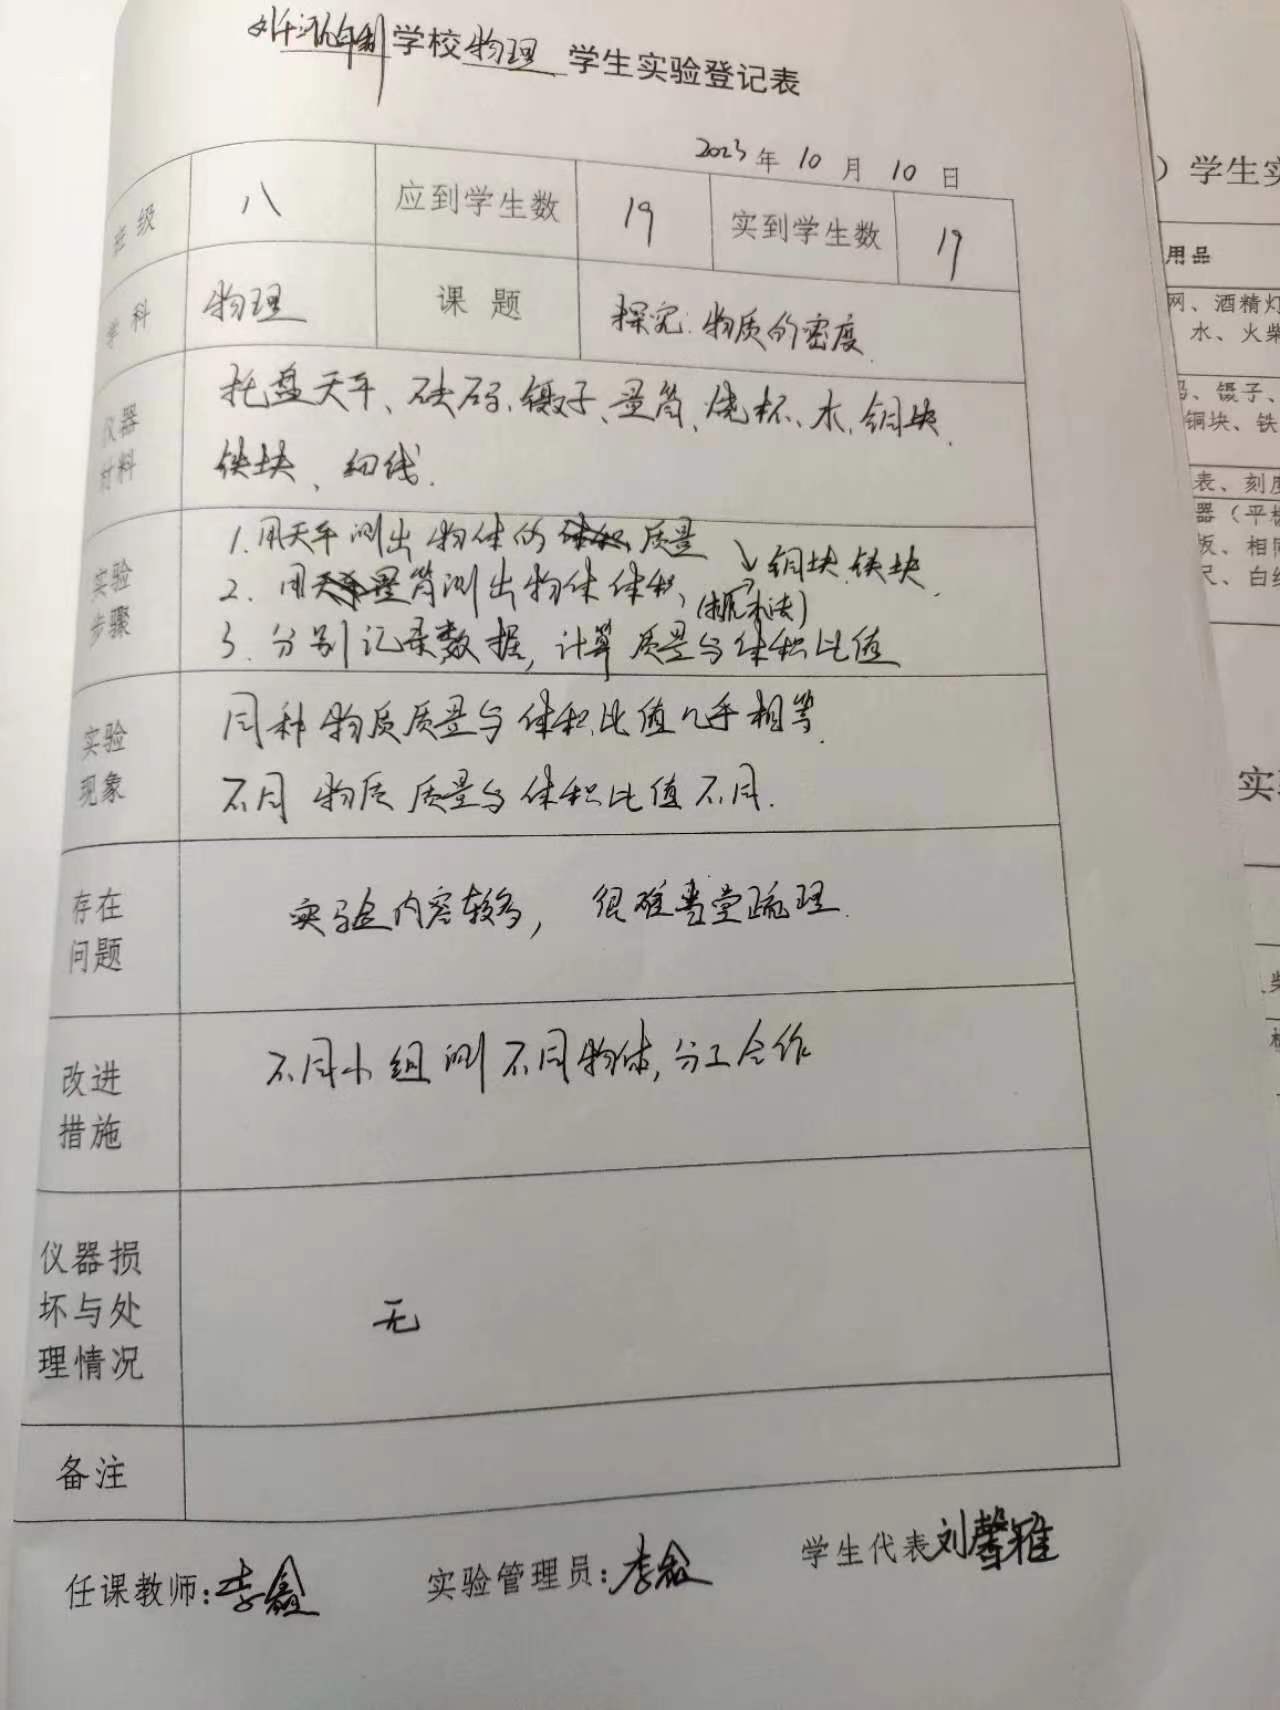 学校物理 学生实验登记表
2023年10月10日
班级 八 应到学生数 19 实到学生数 19
学科 物理 课题 探究:物质的密度.
仪器材料 托盘天平、砝码、镊子、量筒、烧杯、水、铜块、
铁块、细线.
实验步骤 1.用天平测出物体的质量 ↘铜块、铁块.
2.用量筒测出物体体积,(排水法)
3.分别记录数据,计算质量与体积比值
实验现象 同种物质质量与体积比值几乎相等.
不同物质质量与体积比值不同.
存在问题 实验内容较多,很难当堂疏理.
改进措施 不同小组测不同物体,分工合作
仪器损坏与处理情况 无
备注
任课教师:李鑫 实验管理员:李鑫 学生代表刘馨雅
)学生实
用品
网、酒精灯
水、火柴
码、镊子、
铜块、铁
表、刻度
器(平板
板、相同
尺、白纸
实